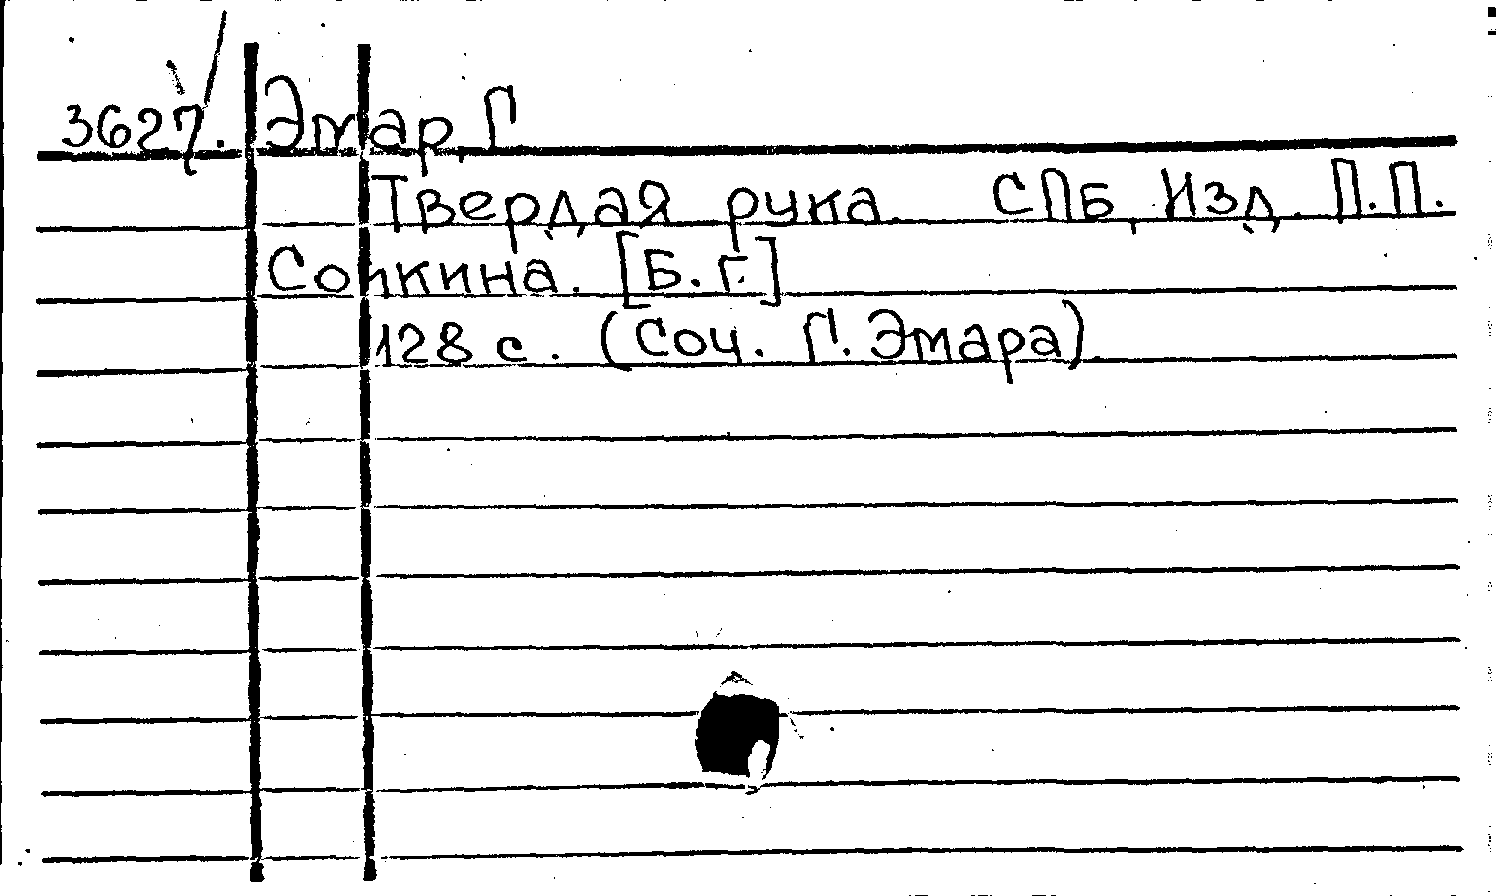 3627. Эмар, Г.
Твердая рука. СПБ, Изд. П.П.
Сойкина. [Б.г.]
128 с. (Соч. Г. Эмара).